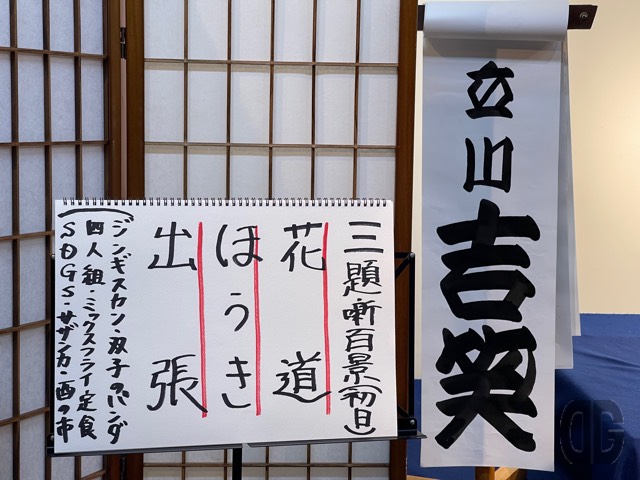 立川吉笑
三題噺百景(初日)
花道
ほうき
出張
(ジンギスカン・双子のパンダ
四人組・ミックスフライ定食
SDGS・サザンカ・酉の市
DG